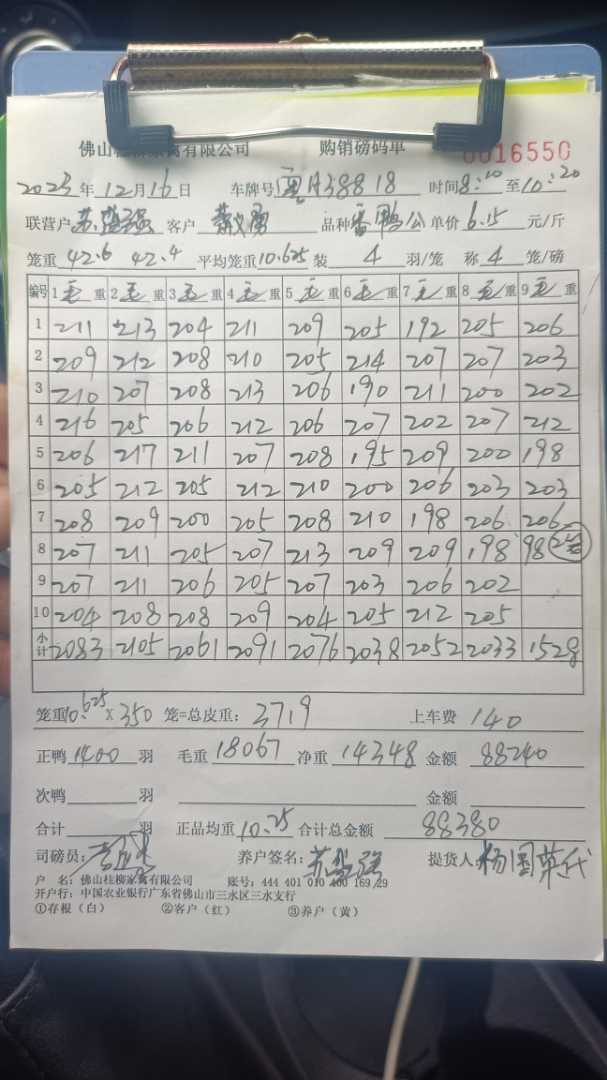 佛山桂柳家禽有限公司 购销磅码单 0016550
2023年12月16日 车牌号 38818 时间8:10至10:20
联营户 苏 强 客户 勇 品种 番鸭公 单价 6.15 元/斤
笼重 42.6 42.4 平均笼重 10.625 装 4 羽/笼 称 4 笼/磅
编号 1毛重 2毛重 3毛重 4毛重 5毛重 6毛重 7毛重 8毛重 9毛重
1 211 213 204 211 209 205 192 205 206
2 209 212 208 210 205 214 207 207 203
3 210 207 208 213 206 190 211 200 202
4 216 205 206 212 206 207 202 207 212
5 206 217 211 207 208 195 209 200 198
6 205 212 205 212 210 200 206 203 203
7 208 209 200 205 208 210 198 206 206
8 207 211 205 207 213 209 209 198 98
9 207 211 206 205 207 203 206 202
10 204 208 208 209 204 205 212 205
小计 2083 2105 2061 2091 2076 2038 2052 2033 1528
笼重 10.625 X 350 笼=总皮重: 3719 上车费 140
正鸭 1400 羽 毛重 18067 净重 14348 金额 88240
次鸭 羽 金额
合计 羽 正品均重 10.25 合计总金额 88380
司磅员: 养户签名: 苏 强 提货人 杨国 代
户 名: 佛山桂柳家禽有限公司 账号: 444 401 010 400 169 29
开户行: 中国农业银行广东省佛山市三水区三水支行
①存根(白) ②客户(红) ③养户(黄)